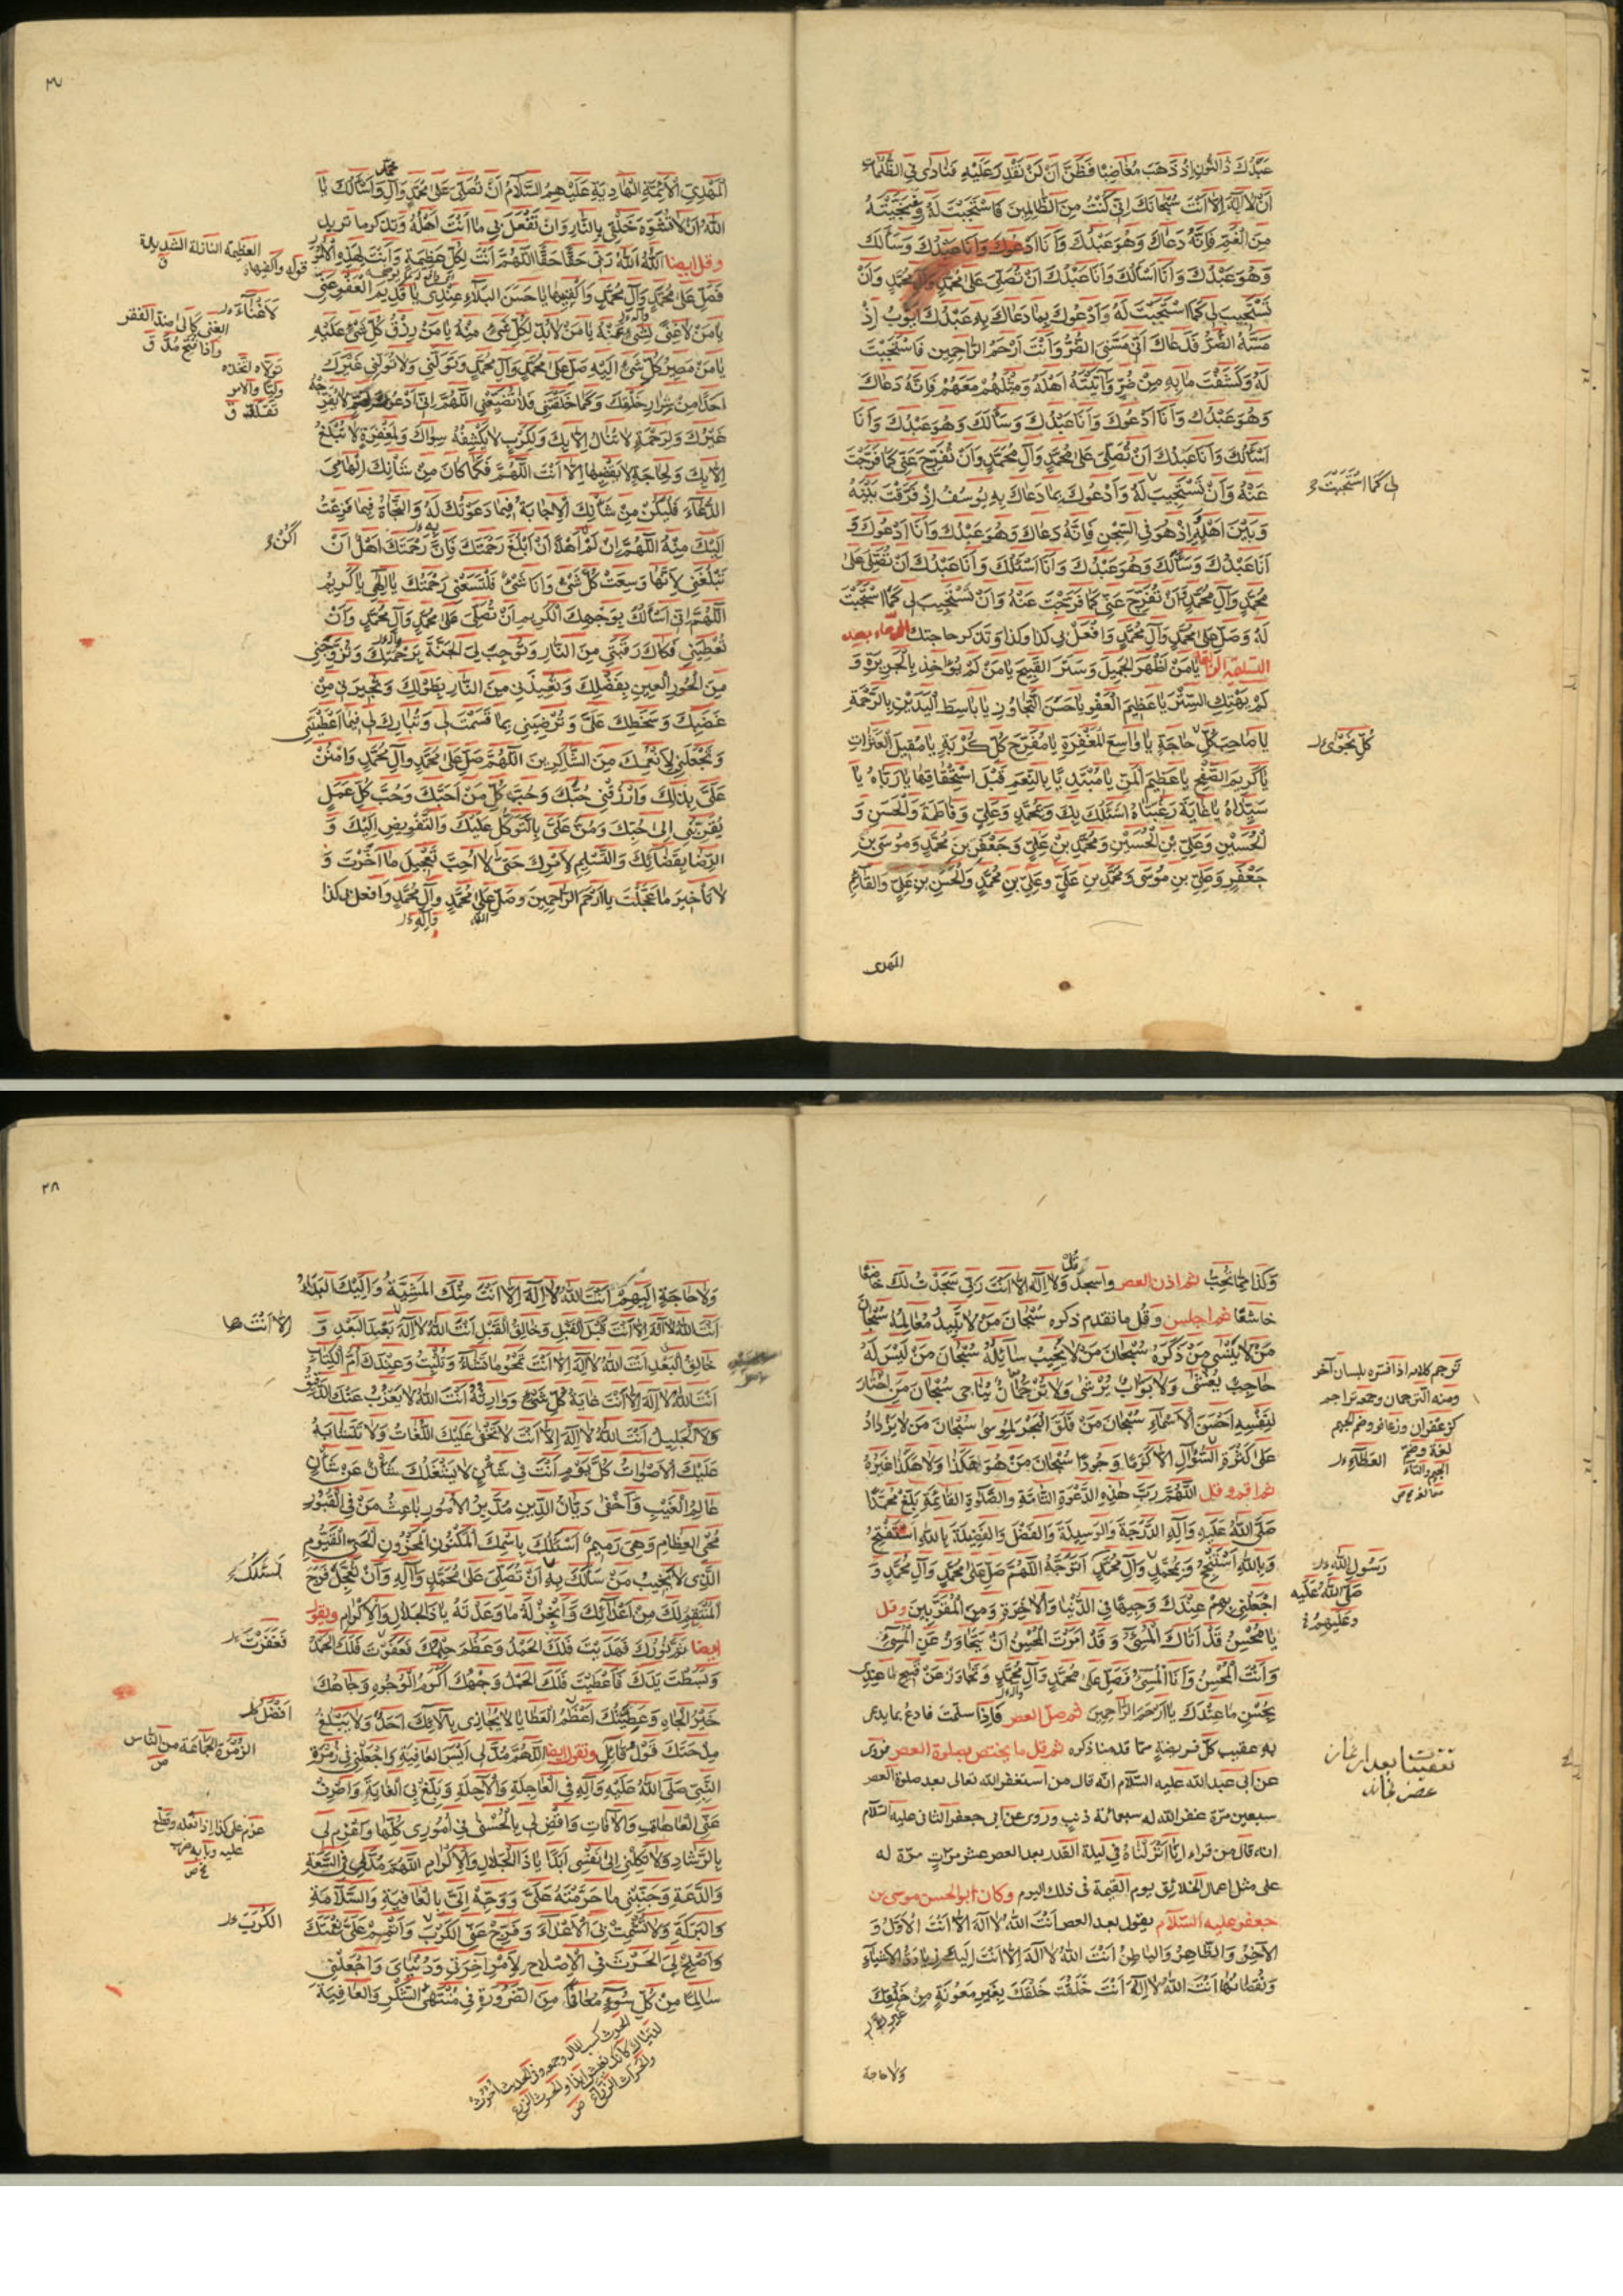 عَبْدُكَ ذُا النُّونِ اِذْ ذَهَبَ مُغٰاضِبًا فَظَنَّ اَنْ لَنْ نَقْدِرَ عَلَيْهِ فَنٰادٰى فِى الظُّلُمٰاتِ
اَنْ لٰا اِلٰهَ اِلّٰا اَنْتَ سُبْحٰانَكَ اِنّى كُنْتُ مِنَ الظّٰالِمِينَ فَاسْتَجَبْتَ لَهُ وَنَجَّيْتَهُ
مِنَ الْغَمِّ فَاِنَّهُ دَعٰاكَ وَهُوَ عَبْدُكَ وَاَنَا اَدْعُوكَ وَاَنَا عَبْدُكَ وَسَاَلَكَ
وَهُوَ عَبْدُكَ وَاَنَا اَسْاَلُكَ وَاَنَا عَبْدُكَ اَنْ تُصَلِّىَ عَلىٰ مُحَمَّدٍ وَآلِ مُحَمَّدٍ وَاَنْ
تَسْتَجِيبَ لِى كَمَا اسْتَجَبْتَ لَهُ وَاَدْعُوكَ بِمٰا دَعٰاكَ بِهِ عَبْدُكَ اَيُّوبُ اِذْ
مَسَّهُ الضُّرُّ فَدَعٰاكَ اَنّى مَسَّنِىَ الضُّرُّ وَاَنْتَ اَرْحَمُ الرّٰاحِمِين فَاسْتَجَبْتَ
لَهُ وَكَشَفْتَ مٰا بِهِ مِنْ ضُرٍّ وَآتَيْتَهُ اَهْلَهُ وَمِثْلَهُمْ مَعَهُمْ فَاِنَّهُ دَعٰاكَ
وَهُوَ عَبْدُكَ وَاَنَا اَدْعُوكَ وَاَنَا عَبْدُكَ وَسَاَلَكَ وَهُوَ عَبْدُكَ وَاَنَا
اَسْاَلُكَ وَاَنَا عَبْدُكَ اَنْ تُصَلِّىَ عَلىٰ مُحَمَّدٍ وَآلِ مُحَمَّدٍ وَاَنْ تُفَرِّجَ عَنّى كَمٰا فَرَّجْتَ
عَنْهُ وَاَنْ تَسْتَجِيبَ لَهُ وَاَدْعُوكَ بِمٰا دَعٰاكَ بِهِ يُوسُفُ اِذْ فَرَّقْتَ بَيْنَهُ
لِى كَمَا اسْتَجَبْتَ
وَبَيْنَ اَهْلِهِ اِذْ هُوَ فِى السِّجْنِ فَاِنَّهُ دَعٰاكَ وَهُوَ عَبْدُكَ وَاَنَا اَدْعُوكَ وَ
اَنَا عَبْدُكَ وَسَاَلَكَ وَهُوَ عَبْدُكَ وَاَنَا اَسْئَلُكَ وَاَنَا عَبْدُكَ اَنْ تُصَلِّىَ عَلىٰ
مُحَمَّدٍ وَآلِ مُحَمَّدٍ وَاَنْ تُفَرِّجَ عَنّى كَمٰا فَرَّجْتَ عَنْهُ وَاَنْ تَسْتَجِيبَ لِى كَمَا اسْتَجَبْتَ
لَهُ وَصَلِّ عَلىٰ مُحَمَّدٍ وَآلِ مُحَمَّدٍ وَافْعَلْ بى كذا وكذا وَتذكر حاجتك الدّعاء بعد
التسليمة يٰا مَنْ اَظْهَرَ الْجَمِيلَ وَسَتَرَ الْقَبِيحَ يٰا مَنْ لَمْ يُؤٰاخِذْ بِالْجَرِيرَةِ وَ
لَمْ يَهْتِكِ السِّتْرَ يٰا عَظِيمَ الْعَفْوِ يٰا حَسَنَ التَّجٰاوُزِ يٰا بٰاسِطَ الْيَدَيْنِ بِالرَّحْمَةِ
يٰا صٰاحِبَ كُلِّ حٰاجَةٍ يٰا وٰاسِعَ الْمَغْفِرَةِ يٰا مُفَرِّجَ كُلِّ كُرْبَةٍ يٰا مُقِيلَ الْعَثَرٰاتِ
كُلِّ نَجْوٰى
يٰا كَرِيمَ الصَّفْحِ يٰا عَظِيمَ الْمَنِّ يٰا مُبْتَدِيًا بِالنِّعَمِ قَبْلَ اسْتِحْقٰاقِهٰا يٰا رَبّٰاهُ يٰا
سَيِّدٰاهُ يٰا غٰايَةَ رَغْبَتٰاهُ اَسْئَلُكَ بِكَ وَبِمُحَمَّدٍ وَعَلِيٍّ وَفٰاطِمَةَ وَالْحَسَنِ وَ
الْحُسَيْنِ وَعَلِيِّ بْنِ الْحُسَيْنِ وَمُحَمَّدِ بْنِ عَلِيٍّ وَجَعْفَرِ بْنِ مُحَمَّدٍ وَمُوسَى بْنِ
جَعْفَرٍ وَعَلِيِّ بْنِ مُوسىٰ وَمُحَمَّدِ بْنِ عَلِيٍّ وعَلِيِّ بْنِ مُحَمَّدٍ وَالْحَسَنِ بْنِ عَلِيٍّ وَالْقٰائِمِ
المهدى
الْمَهْدِيِّ الْاَئِمَّةِ الْهٰادِيَةِ عَلَيْهِمُ السَّلٰامُ اَنْ تُصَلِّىَ عَلىٰ مُحَمَّدٍ وَآلِ مُحَمَّدٍ وَاَسْاَلُكَ يٰا
اَللّٰهُ اَنْ لٰا تُشَوِّهَ خَلْقى بِالنّٰارِ وَاَنْ تَفْعَلَ بى مٰا اَنْتَ اَهْلُهُ وَتذكر ما تريد
وقل ايضا اَللّٰهُ اَللّٰهُ رَبّى حَقًّا حَقًّا اَللّٰهُمَّ اَنْتَ لِكُلِّ عَظِيمَةٍ وَاَنْتَ لِهٰذِهِ الْاُمُورِ
العظيمة النازلة الشديدة
فَصَلِّ عَلىٰ مُحَمَّدٍ وَآلِ مُحَمَّدٍ وَاكْفِنيهٰا يٰا حَسَنَ الْبَلٰاءِ عِنْدى يٰا قَدِيمَ الْعَفْوِ عَنّى
يٰا مَنْ لٰا غِنىٰ لِشَىْءٍ عَنْهُ يٰا مَنْ لٰا بُدَّ لِكُلِّ شَىْءٍ مِنْهُ يٰا مَنْ رِزْقُ كُلِّ شَىْءٍ عَلَيْهِ
لَا غَنٰاءَ
الغنى كالى ضد الفقر
واذا فتح مدّ ق
يٰا مَنْ مَصِيرُ كُلِّ شَىْءٍ اِلَيْهِ صَلِّ عَلىٰ مُحَمَّدٍ وَآلِ مُحَمَّدٍ وَتَوَلَّنى وَلٰا تُوَلِّنى غَيْرَكَ
تولاه اتخذه
وليّا والامر
تقلّده ق
اَحَدًا مِنْ شِرٰارِ خَلْقِكَ وَكَمٰا خَلَقْتَنى فَلٰا تُضَيِّعْنى اَللّٰهُمَّ اِنّى اَدْعُوكَ لِهَمٍّ لٰا يُفَرِّجُهُ
غَيْرُكَ وَلِرَحْمَةٍ لٰا تُنٰالُ اِلّٰا بِكَ وَلِكَرْبٍ لٰا يَكْشِفُهُ سِوٰاكَ وَلِمَغْفِرَةٍ لٰا تُبْلَغُ
اِلّٰا بِكَ وَلِحٰاجَةٍ لٰا يَقْضيهٰا اِلّٰا اَنْتَ اَللّٰهُمَّ فَكَمٰا كٰانَ مِنْ شَاْنِكَ اِلْهٰامِىَ
الدُّعٰاءَ فَلْيَكُنْ مِنْ شَاْنِكَ الْاِجٰابَةُ فِيمٰا دَعَوْتُكَ لَهُ وَالنَّجٰاةُ فِيمٰا فَزِعْتُ
اِلَيْكَ مِنْهُ اَللّٰهُمَّ اِنْ لَمْ اَهْلًا اَنْ اَبْلُغَ رَحْمَتَكَ فَاِنَّ رَحْمَتَكَ اَهْلٌ اَنْ
اَكُنْ
تَبْلُغَنى لِاَنَّهٰا وَسِعَتْ كُلَّ شَىْءٍ وَاَنَا شَىْءٌ فَلْتَسَعْنى رَحْمَتُكَ يٰا اِلٰهى يٰا كَرِيمُ
اَللّٰهُمَّ اِنّى اَسْاَلُكَ بِوَجْهِكَ الْكَرِيمِ اَنْ تُصَلِّىَ عَلىٰ مُحَمَّدٍ وَآلِ مُحَمَّدٍ وَاَنْ
تُعْطِيَنى فَكٰاكَ رَقَبَتى مِنَ النّٰارِ وَتُوجِبَ لِىَ الْجَنَّةَ بِرَحْمَتِكَ وَتُزَوِّجَنى
مِنَ الْحُورِ الْعِينِ بِفَضْلِكَ وَتُعِيذَنى مِنَ النّٰارِ بِطَوْلِكَ وَتُجِيرَنى مِنْ
غَضَبِكَ وَسَخَطِكَ عَلَىَّ وَتُرْضِيَنى بِمٰا قَسَمْتَ لى وَتُبٰارِكَ لى فِيمٰا اَعْطَيْتَنى
وَتَجْعَلَنى لِاَنْعُمِكَ مِنَ الشّٰاكِرِينَ اَللّٰهُمَّ صَلِّ عَلىٰ مُحَمَّدٍ وَآلِ مُحَمَّدٍ وَامْنُنْ
عَلَىَّ بِذٰلِكَ وَارْزُقْنى حُبَّكَ وَحُبَّ كُلِّ مَنْ اَحَبَّكَ وَحُبَّ كُلِّ عَمَلٍ
يُقَرِّبُنى اِلىٰ حُبِّكَ وَمُنَّ عَلَىَّ بِالتَّوَكُّلِ عَلَيْكَ وَالتَّفْوِيضِ اِلَيْكَ وَ
الرِّضٰا بِقَضٰائِكَ وَالتَّسْلِيمِ لِاَمْرِكَ حَتّىٰ لٰا اُحِبَّ تَعْجِيلَ مٰا اَخَّرْتَ وَ
لٰا تَأْخِيرَ مٰا عَجَّلْتَ يٰا اَرْحَمَ الرّٰاحِمِينَ وَصَلِّ عَلىٰ مُحَمَّدٍ وَآلِ مُحَمَّدٍ وَافعل بى كذا
وَكَذا مِمّا تحِبّ ثم اذن العصر واسجد وَقُلْ لٰا اِلٰهَ اِلّٰا اَنْتَ رَبّى سَجَدْتُ لَكَ خٰاضِعًا
خٰاشِعًا ثم اجلس وقل ما تقدم ذكره سُبْحٰانَ مَنْ لٰا تَبِيدُ مَعٰالِمُهُ سُبْحٰانَ
مَنْ لٰا يَنْسىٰ مَنْ ذَكَرَهُ سُبْحٰانَ مَنْ لٰا يَخِيبُ سٰائِلُهُ سُبْحٰانَ مَنْ لَيْسَ لَهُ
ترجم كلامه اذا فسّره بلسان آخر
ومنه الترجمان وجمعه تراجم
كزعفران وزعافر وضم الجيم
لغة وضمّ
الجيم والتاء
حٰاجِبٌ يُغْشىٰ وَلٰا بَوّٰابٌ يُرْشىٰ وَلٰا تَرْجُمٰانٌ يُنٰاجىٰ سُبْحٰانَ مَنِ اخْتٰارَ
لِنَفْسِهِ اَحْسَنَ الْاَسْمٰاءِ سُبْحٰانَ مَنْ فَلَقَ الْبَحْرَ لِمُوسىٰ سُبْحٰانَ مَنْ لٰا يَزْدٰادُ
عَلىٰ كَثْرَةِ السُّؤٰالِ اِلّٰا كَرَمًا وَجُودًا سُبْحٰانَ مَنْ هُوَ هٰكَذٰا وَلٰا هٰكَذٰا غَيْرُهُ
العَطٰاءِ
ثم اقم وقل اَللّٰهُمَّ رَبَّ هٰذِهِ الدَّعْوَةِ التّٰامَّةِ وَالصَّلٰوةِ الْقٰائِمَةِ بَلِّغْ مُحَمَّدًا
صَلَّى اللّٰهُ عَلَيْهِ وَآلِهِ الدَّرَجَةَ وَالْوَسِيلَةَ وَالْفَضْلَ وَالْفَضِيلَةَ بِاللّٰهِ اَسْتَفْتِحُ
وَبِاللّٰهِ اَسْتَنْجِحُ وَبِمُحَمَّدٍ وَآلِ مُحَمَّدٍ اَتَوَجَّهُ اَللّٰهُمَّ صَلِّ عَلىٰ مُحَمَّدٍ وَآلِ مُحَمَّدٍ وَ
رَسُولِ اللّٰهِ
صَلَّى اللّٰهُ عَلَيْهِ
وَعَلَيْهِمْ
اجْعَلْنى بِهِمْ عِنْدَكَ وَجِيهًا فِى الدُّنْيٰا وَالْاٰخِرَةِ وَمِنَ الْمُقَرَّبِينَ وقل
يٰا مُحْسِنُ قَدْ اَتٰاكَ الْمُسِىءُ وَقَدْ اَمَرْتَ الْمُحْسِنَ اَنْ يَتَجٰاوَزَ عَنِ الْمُسِىءِ
وَاَنْتَ الْمُحْسِنُ وَاَنَا الْمُسِىءُ فَصَلِّ عَلىٰ مُحَمَّدٍ وَآلِ مُحَمَّدٍ وَتَجٰاوَزْ عَنْ قَبِيحِ مٰا عِنْدى
بِحُسْنِ مٰا عِنْدَكَ يٰا اَرْحَمَ الرّٰاحِمِينَ ثم صلّ العصر فَاِذا سلّمت فادعُ بما يدعى
به عقيب كلّ فريضةٍ ممّا قدمنا ذكره ثم قل ما يختص بصلوة العصر فروى
تعقيبات بعد از نماز
عصر خٰواند
عن ابى عبد الله عليه السّلام انّه قال من استغفر الله تعالى بعد صلوة العصر
سبعين مرّة غفر الله له سبعمائة ذنبٍ وروى عن ابى جعفر الثانى عليه السّلام
انه قال من قراء اِنّٰا اَنْزَلْنٰاهُ فِى ليلة القدر بعد العصر عشر مرّاتٍ مرّة له
على مثل اعمال الخلائق يوم القيمة فى ذلك اليوم وكان ابو الحسن موسى بن
جعفر عليه السّلام يقول بعد العصر اَنْتَ اللّٰهُ لٰا اِلٰهَ اِلّٰا اَنْتَ الْاَوَّلُ وَ
الْاٰخِرُ وَالظّٰاهِرُ وَالْبٰاطِنُ اَنْتَ اللّٰهُ لٰا اِلٰهَ اِلّٰا اَنْتَ اِلَيْكَ زِيٰادَةُ الْاَشْيٰاءِ
وَنُقْصٰانُهٰا اَنْتَ اللّٰهُ لٰا اِلٰهَ اَنْتَ خَلَقْتَ خَلْقَكَ بِغَيْرِ مَعُونَةٍ مِنْ غَيْرِكَ
ولا حاجة
٢٨
وَلٰا حٰاجَةٍ اِلَيْهِمْ اَنْتَ اللّٰهُ لٰا اِلٰهَ اِلّٰا اَنْتَ مِنْكَ الْمَشِيَّةُ وَاِلَيْكَ الْبَدٰاءُ
اَنْتَ اللّٰهُ لٰا اِلٰهَ اِلّٰا اَنْتَ قَبْلَ الْقَبْلِ وَخٰالِقُ الْقَبْلِ اَنْتَ اللّٰهُ لٰا اِلٰهَ بَعْدَ الْبَعْدِ وَ
اِلّٰا اَنْتَ
خٰالِقُ الْبَعْدِ اَنْتَ اللّٰهُ لٰا اِلٰهَ اِلّٰا اَنْتَ تَمْحُو مٰا تَشٰاءُ وَتُثْبِتُ وَعِنْدَكَ اُمُّ الْكِتٰابِ
اَنْتَ اللّٰهُ لٰا اِلٰهَ اِلّٰا اَنْتَ غٰايَةُ كُلِّ شَىْءٍ وَوٰارِثُهُ اَنْتَ اللّٰهُ لٰا يَعْزُبُ عَنْكَ الدَّقِيقُ
وَلَا الْجَلِيلُ اَنْتَ اللّٰهُ لٰا اِلٰهَ اِلّٰا اَنْتَ لٰا تَخْفىٰ عَلَيْكَ اللُّغٰاتُ وَلٰا تَتَشٰابَهُ
عَلَيْكَ الْاَصْوٰاتُ كُلَّ يَوْمٍ اَنْتَ فى شَأْنٍ لٰا يَشْغَلُكَ شَأْنٌ عَنْ شَأْنٍ
عٰالِمُ الْغَيْبِ وَاَخْفىٰ دَيّٰانُ الدِّينِ مُدَبِّرُ الْاُمُورِ بٰاعِثُ مَنْ فِى الْقُبُورِ
مُحْيِى الْعِظٰامِ وَهِىَ رَمِيمٌ اَسْئَلُكَ بِاسْمِكَ الْمَكْنُونِ الْمَخْزُونِ الْحَىِّ الْقَيُّومِ
الَّذى لٰا يَخِيبُ مَنْ سَاَلَكَ بِهِ اَنْ تُصَلِّىَ عَلىٰ مُحَمَّدٍ وَآلِهِ وَاَنْ تُعَجِّلَ فَرَجَ
الْمُنْتَقِمِ لَكَ مِنْ اَعْدٰائِكَ وَاَنْجِزْ لَهُ مٰا وَعَدْتَهُ يٰا ذَا الْجَلٰالِ وَالْاِكْرٰامِ ويقول
ايضا تَمَّ نُورُكَ فَهَدَيْتَ فَلَكَ الْحَمْدُ وَعَظُمَ حِلْمُكَ فَعَفَوْتَ فَلَكَ الْحَمْدُ
فَغَفَرْتَ
وَبَسَطْتَ يَدَكَ فَاَعْطَيْتَ فَلَكَ الْحَمْدُ وَجْهُكَ اَكْرَمُ الْوُجُوهِ وَجٰاهُكَ
خَيْرُ الْجٰاهِ وَعَطِيَّتُكَ اَعْظَمُ الْعَطٰايٰا لٰا يُجٰازى بِآلٰائِكَ اَحَدٌ وَلٰا يَبْلُغُ
اَفْضَلُ
مِدْحَتَكَ قَوْلُ قٰائِلٍ وتقول ايضا اَللّٰهُمَّ مُدَّ لى اَيْسَرَ الْعٰافِيَةِ وَاجْعَلْنى فى زُمْرَةِ
الزمرة الجماعة من الناس
ص
النَّبِىِّ صَلَّى اللّٰهُ عَلَيْهِ وَآلِهِ فِى الْعٰاجِلَةِ وَالْاٰجِلَةِ وَبَلِّغْ بِىَ الْغٰايَةَ وَاصْرِفْ
عَنِّى الْعٰاهٰاتِ وَالْاٰفٰاتِ وَاقْضِ لى بِالْحُسْنىٰ فى اُمُورى كُلِّهٰا وَاعْزِمْ لى
عزم على كذا اذا فعله وقطع
عليه
بِالرَّشٰادِ وَلٰا تَكِلْنى اِلىٰ نَفْسى اَبَدًا يٰا ذَا الْجَلٰالِ وَالْاِكْرٰامِ اَللّٰهُمَّ مُدَّ لى فِى السَّعَةِ
وَالدَّعَةِ وَجَنِّبْنى مٰا حَرَّمْتَهُ عَلَىَّ وَوَجِّهْ اِلَىَّ بِالْعٰافِيَةِ وَالسَّلٰامَةِ
وَالْبَرَكَةِ وَلٰا تُشْمِتْ بِىَ الْاَعْدٰاءَ وَفَرِّجْ عَنِّى الْكَرْبَ وَاَتْمِمْ عَلَىَّ نِعْمَتَكَ
الكُرَبَ
وَاَصْلِحْ لِىَ الْحَرْثَ فِى الْاِصْلٰاحِ لِاَمْرِ آخِرَتى وَدُنْيٰاىَ وَاجْعَلْنى
سٰالِمًا مِنْ كُلِّ سُوءٍ مُعٰافًا مِنَ الضَّرُورَةِ فى مُنْتَهَى الشُّكْرِ وَالْعٰافِيَةِ